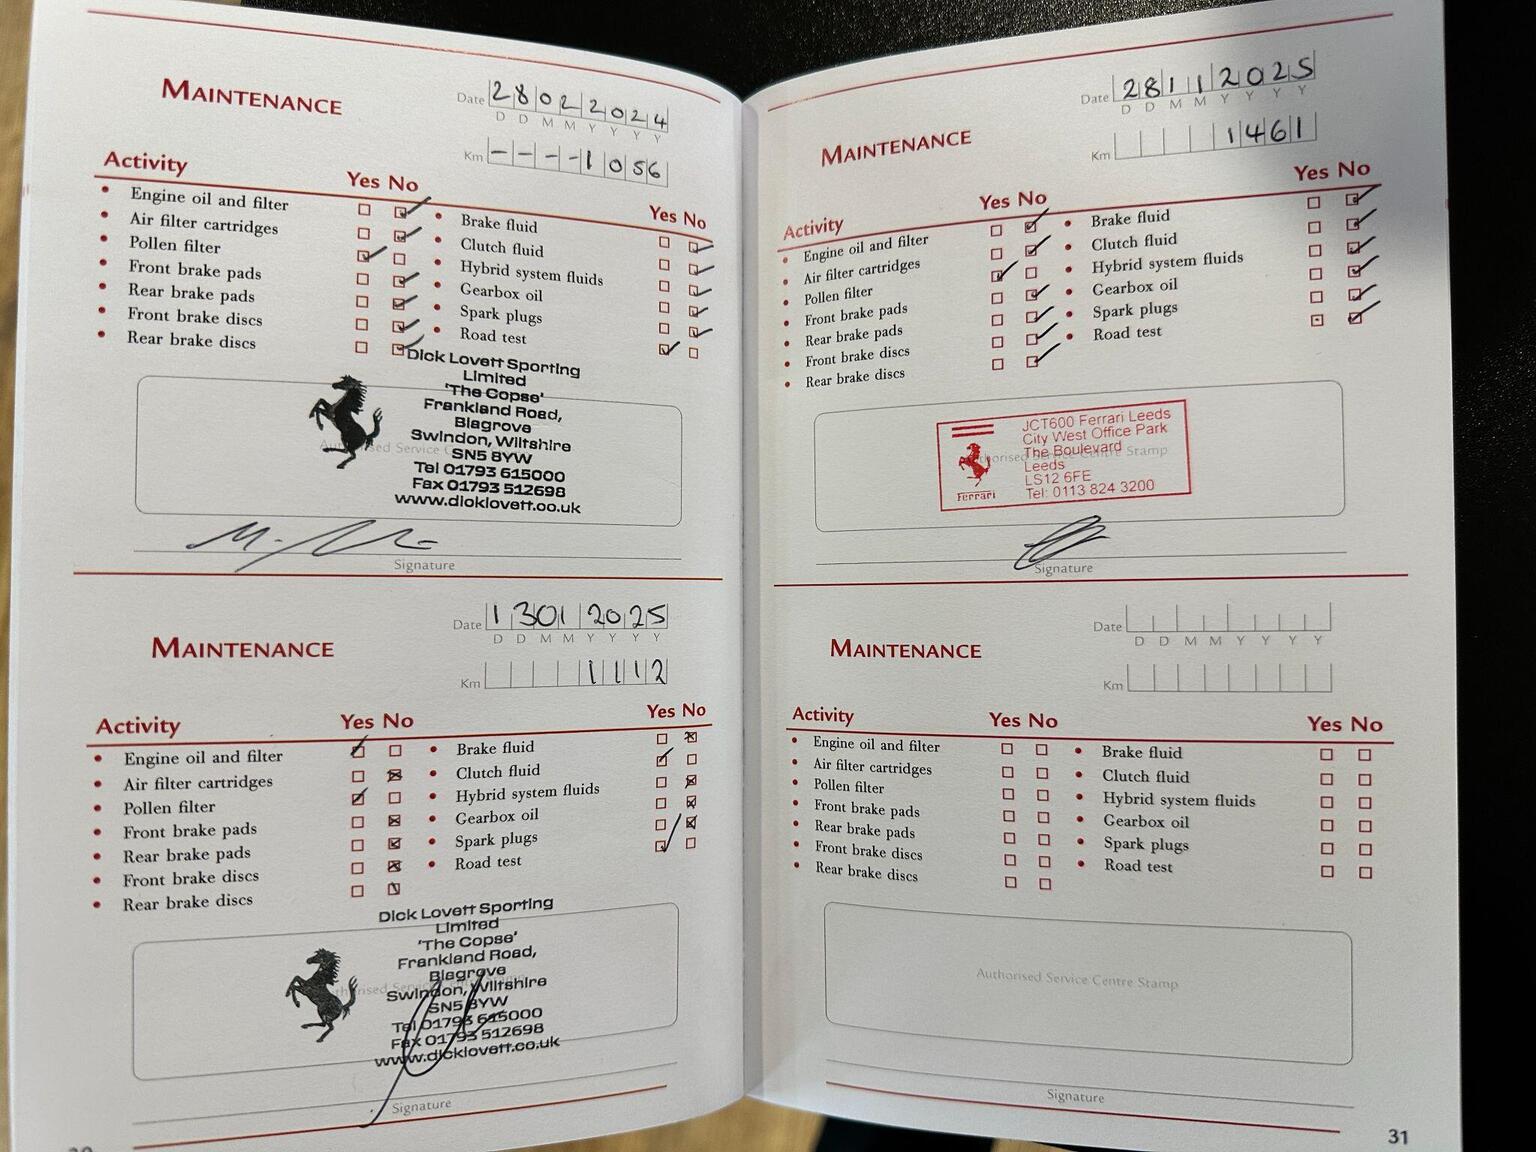 MAINTENANCE
Date 28022024
D D M M Y Y Y Y
Km ----1056
Activity
Yes No
Yes No
Engine oil and filter
Air filter cartridges
Pollen filter
Front brake pads
Rear brake pads
Front brake discs
Rear brake discs
Brake fluid
Clutch fluid
Hybrid system fluids
Gearbox oil
Spark plugs
Road test
Dick Lovett Sporting
Limited
'The Copse'
Frankland Road,
Blagrove
Swindon, Wiltshire
SN5 8YW
Tel 01793 615000
Fax 01793 512698
www.dicklovett.co.uk
Signature
MAINTENANCE
Date 13012025
D D M M Y Y Y Y
Km 1112
Activity
Yes No
Yes No
Engine oil and filter
Air filter cartridges
Pollen filter
Front brake pads
Rear brake pads
Front brake discs
Rear brake discs
Brake fluid
Clutch fluid
Hybrid system fluids
Gearbox oil
Spark plugs
Road test
Dick Lovett Sporting
Limited
'The Copse'
Frankland Road,
Blagrove
Swindon, Wiltshire
SN5 8YW
Tel 01793 615000
Fax 01793 512698
www.dicklovett.co.uk
Signature
MAINTENANCE
Date 28112025
D D M M Y Y Y Y
Km 1461
Activity
Yes No
Yes No
Engine oil and filter
Air filter cartridges
Pollen filter
Front brake pads
Rear brake pads
Front brake discs
Rear brake discs
Brake fluid
Clutch fluid
Hybrid system fluids
Gearbox oil
Spark plugs
Road test
Authorised Service Centre Stamp
JCT600 Ferrari Leeds
City West Office Park
The Boulevard
Leeds
LS12 6FE
Tel: 0113 824 3200
Ferrari
Signature
MAINTENANCE
Date
D D M M Y Y Y Y
Km
Activity
Yes No
Yes No
Engine oil and filter
Air filter cartridges
Pollen filter
Front brake pads
Rear brake pads
Front brake discs
Rear brake discs
Brake fluid
Clutch fluid
Hybrid system fluids
Gearbox oil
Spark plugs
Road test
Authorised Service Centre Stamp
Signature
31